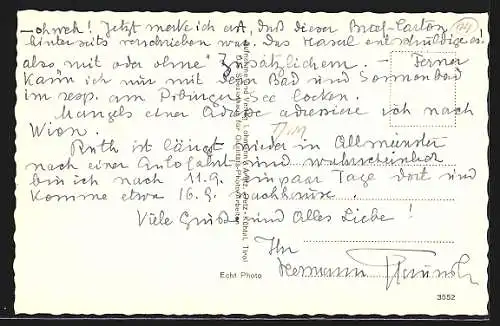 – ohweh! Jetzt merke ich erst, daß dieser Brief-Carton
hinterseits verschrieben war. Das Hasal entschuldige es!
also mit oder ohne Zusätzlichem. – Ferner
kann ich nur mit dem Bad und Sonnenbad
im resp. am Prbinger See locken.
Mangels einer Adresse adressiere ich nach
Wien.
Ruth ist längst wieder in Altmünster
nach einer Autofahrt und wahrscheinlich
bin ich nach 11.9. ein paar Tage dort und
komme etwa 16.9. nachhause.
Viele Grüße und Alles Liebe!
Ihr
Hermann
Echt Photo
3552